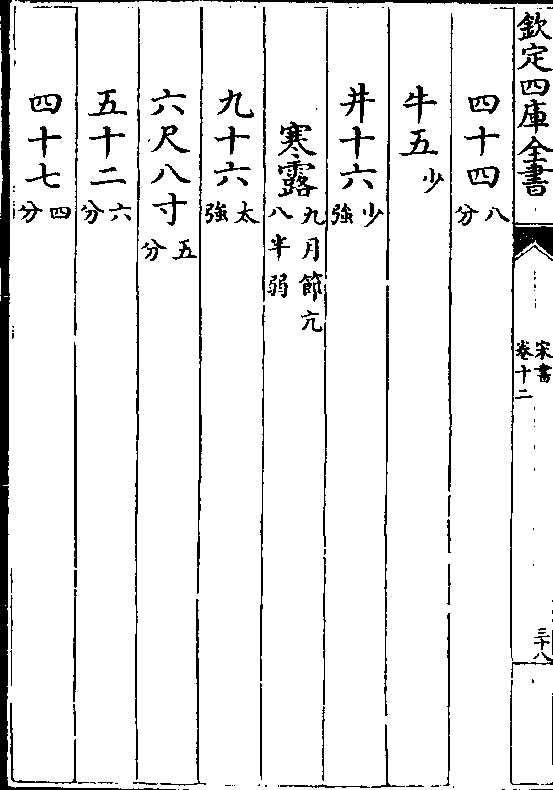 欽定四庫全書
宋書
卷十二
三十八
四十四八分
牛五少
井十六少強
寒露九月節亢八半弱
九十六太強
六尺八寸五分
五十二六分
四十七四分